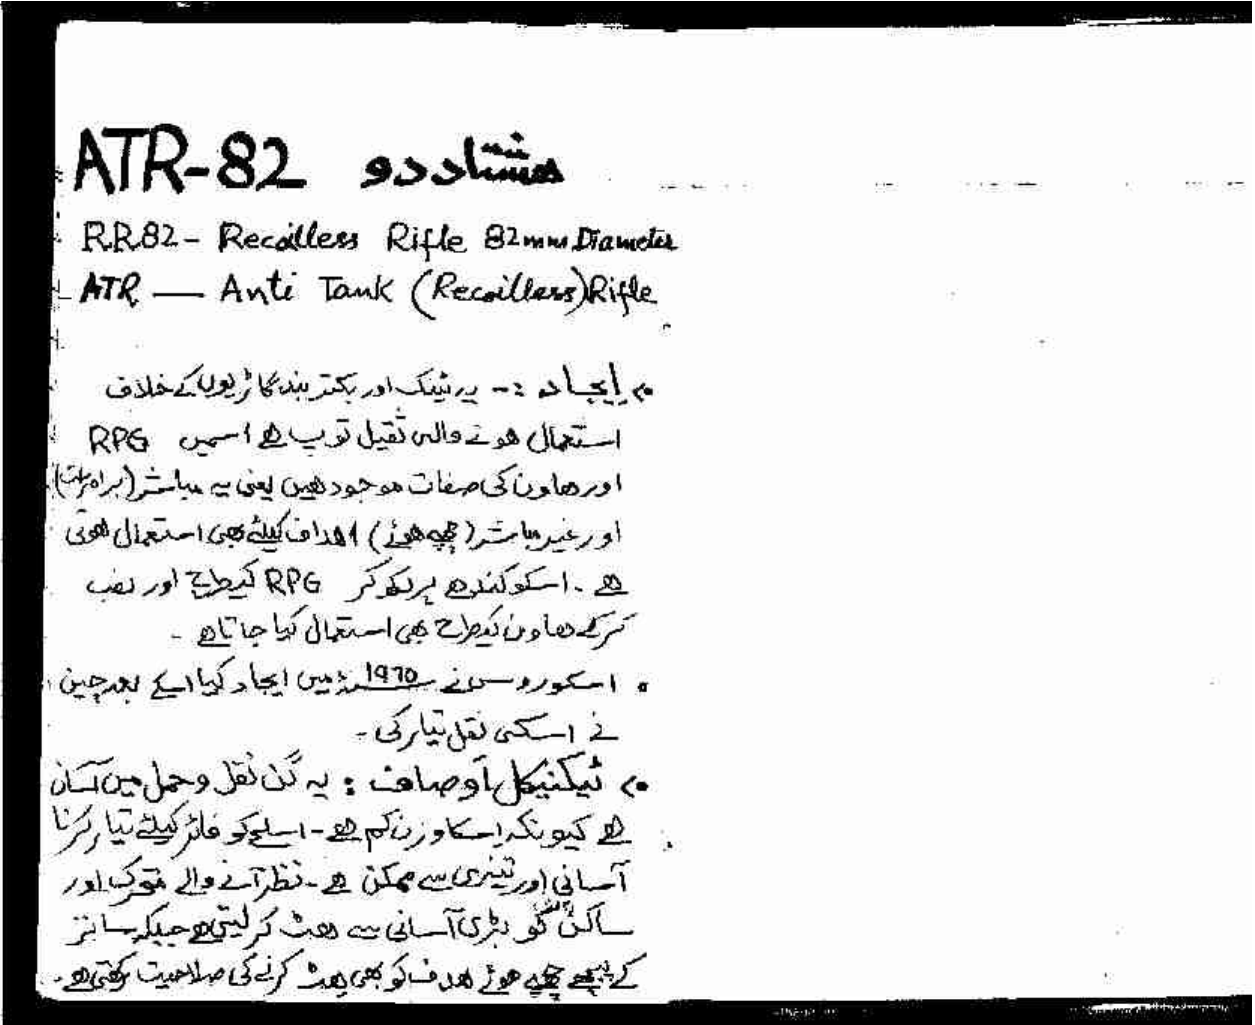 ATR-82 هشتاددو
RR82- Recoilless Rifle 82mm Diameter
ATR — Anti Tank (Recoilless)Rifle
إیجاد :- یہ ٹینک اور بکتر بند گاڑیوں کے خلاف
استعمال ہونے والی ثقیل توپ ہے اسمیں RPG
اور ھاون کی صفات موجود ہیں یعنی یہ مباشر (براہ راست)
اور غیر مباشر (چھپے ہوئے) اھداف کیلئے بھی استعمال ہوتی
ہے ۔ اسکو کندھے پر رکھ کر RPG کیطرح اور نصب
کرکے ھاون کیطرح بھی استعمال کیا جاتا ہے ۔
اسکو روس نے 1970ء میں ایجاد کیا اسکے بعد چین
نے اسکی نقل تیار کی ۔
ٹیکنیکل أوصاف : یہ گن نقل و حمل میں آسان
ہے کیونکہ اسکا وزن کم ہے ۔ اسلحے کو فائر کیلئے تیار کرنا
آسانی اور تیزی سے ممکن ہے ۔ نظر آنے والے متحرک اور
ساکن کو بڑی آسانی سے ھٹ کر لیتی ہے جبکہ
کے پیچھے چھپے ہوئے ھدف کو بھی ھٹ کرنے کی صلاحیت رکھتی ہے ۔